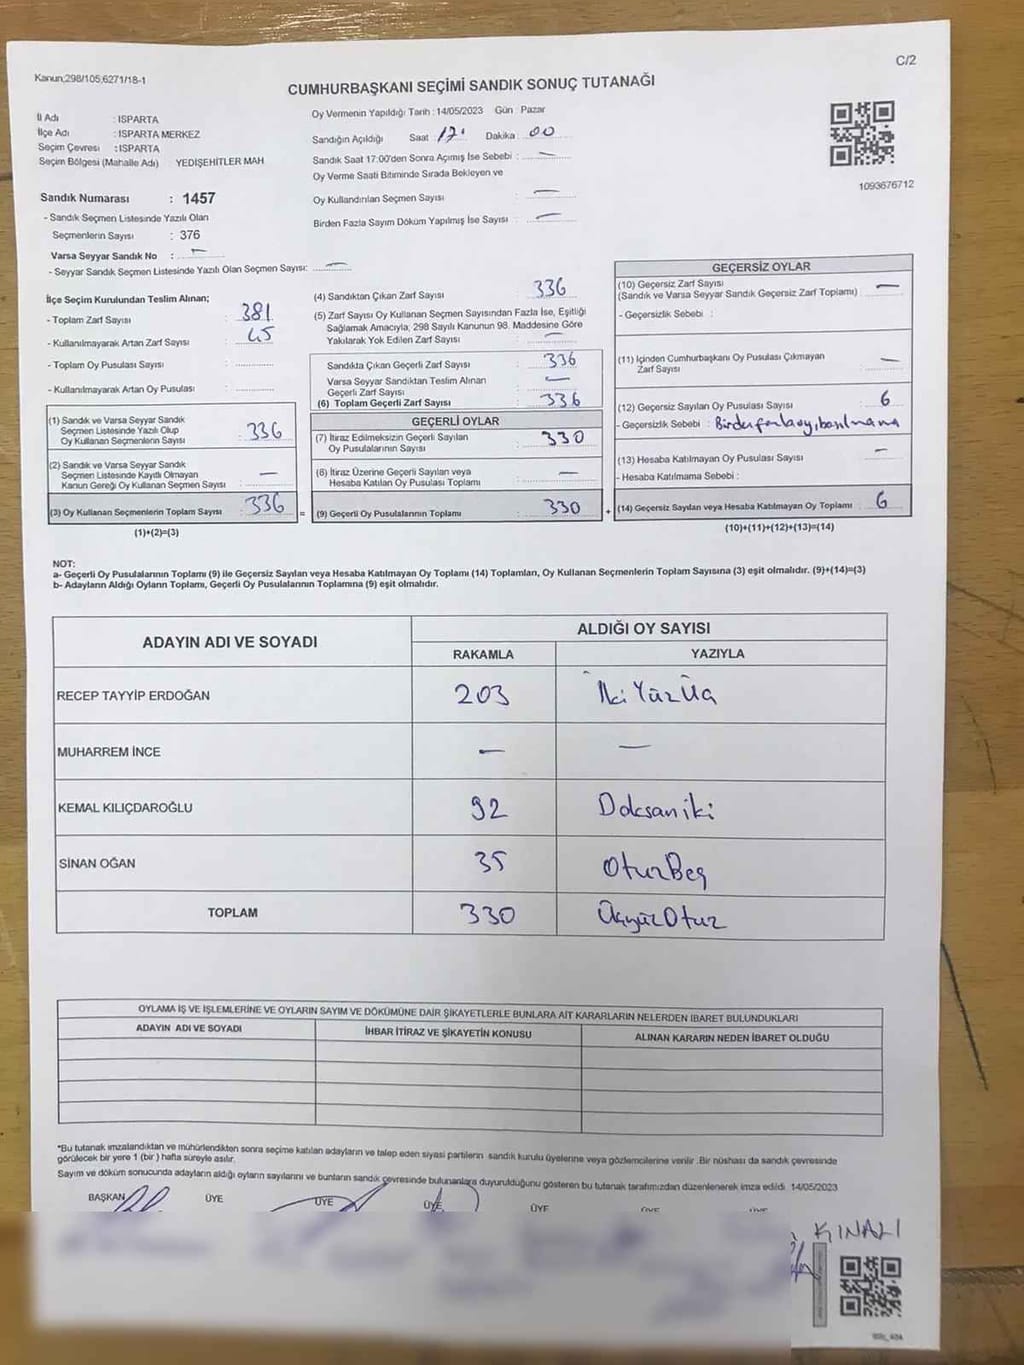 Kanun;298/105;6271/18-1
C/2
CUMHURBAŞKANI SEÇİMİ SANDIK SONUÇ TUTANAĞI
İl Adı : ISPARTA
İlçe Adı : ISPARTA MERKEZ
Seçim Çevresi : ISPARTA
Seçim Bölgesi (Mahalle Adı) YEDİŞEHİTLER MAH
Oy Vermenin Yapıldığı Tarih : 14/05/2023 Gün : Pazar
Sandığın Açıldığı Saat : 17. Dakika : 00
Sandık Saat 17:00'den Sonra Açımış İse Sebebi : —
Oy Verme Saati Bitiminde Sırada Bekleyen ve
Oy Kullandırılan Seçmen Sayısı : —
Birden Fazla Sayım Döküm Yapılmış İse Sayısı : —
1093676712
Sandık Numarası : 1457
- Sandık Seçmen Listesinde Yazılı Olan
Seçmenlerin Sayısı : 376
Varsa Seyyar Sandık No : —
- Seyyar Sandık Seçmen Listesinde Yazılı Olan Seçmen Sayısı: —
İlçe Seçim Kurulundan Teslim Alınan;
- Toplam Zarf Sayısı : 381
- Kullanılmayarak Artan Zarf Sayısı : 45
- Toplam Oy Pusulası Sayısı :
- Kullanılmayarak Artan Oy Pusulası :
(1) Sandık ve Varsa Seyyar Sandık
Seçmen Listesinde Yazılı Olup
Oy Kullanan Seçmenlerin Sayısı : 336
(2) Sandık ve Varsa Seyyar Sandık
Seçmen Listesinde Kayıtlı Olmayan
Kanun Gereği Oy Kullanan Seçmen Sayısı : —
(3) Oy Kullanan Seçmenlerin Toplam Sayısı : 336
(1)+(2)=(3)
(4) Sandıktan Çıkan Zarf Sayısı : 336
(5) Zarf Sayısı Oy Kullanan Seçmen Sayısından Fazla İse, Eşitliği
Sağlamak Amacıyla, 298 Sayılı Kanunun 98. Maddesine Göre
Yakılarak Yok Edilen Zarf Sayısı : —
Sandıkta Çıkan Geçerli Zarf Sayısı : 336
Varsa Seyyar Sandıktan Teslim Alınan
Geçerli Zarf Sayısı : —
(6) Toplam Geçerli Zarf Sayısı : 336
GEÇERLİ OYLAR
(7) İtiraz Edilmeksizin Geçerli Sayılan
Oy Pusulalarının Sayısı : 330
(8) İtiraz Üzerine Geçerli Sayılan veya
Hesaba Katılan Oy Pusulası Toplamı : —
= (9) Geçerli Oy Pusulalarının Toplamı : 330
GEÇERSİZ OYLAR
(10) Geçersiz Zarf Sayısı
(Sandık ve Varsa Seyyar Sandık Geçersiz Zarf Toplamı) : —
- Geçersizlik Sebebi :
(11) İçinden Cumhurbaşkanı Oy Pusulası Çıkmayan
Zarf Sayısı : —
(12) Geçersiz Sayılan Oy Pusulası Sayısı : 6
- Geçersizlik Sebebi : Birden fazla oy, basılmama
(13) Hesaba Katılmayan Oy Pusulası Sayısı : —
- Hesaba Katılmama Sebebi :
+ (14) Geçersiz Sayılan veya Hesaba Katılmayan Oy Toplamı : 6
(10)+(11)+(12)+(13)=(14)
NOT:
a- Geçerli Oy Pusulalarının Toplamı (9) ile Geçersiz Sayılan veya Hesaba Katılmayan Oy Toplamı (14) Toplamları, Oy Kullanan Seçmenlerin Toplam Sayısına (3) eşit olmalıdır. (9)+(14)=(3)
b- Adayların Aldığı Oyların Toplamı, Geçerli Oy Pusulalarının Toplamına (9) eşit olmalıdır.
ADAYIN ADI VE SOYADI ALDIĞI OY SAYISI
RAKAMLA YAZIYLA
RECEP TAYYİP ERDOĞAN 203 İki Yüz Üç
MUHARREM İNCE — —
KEMAL KILIÇDAROĞLU 92 Doksan iki
SİNAN OĞAN 35 Otuz Beş
TOPLAM 330 Üçyüz Otuz
OYLAMA İŞ VE İŞLEMLERİNE VE OYLARIN SAYIM VE DÖKÜMÜNE DAİR ŞİKAYETLERLE BUNLARA AİT KARARLARIN NELERDEN İBARET BULUNDUKLARI
ADAYIN ADI VE SOYADI İHBAR İTİRAZ VE ŞİKAYETİN KONUSU ALINAN KARARIN NEDEN İBARET OLDUĞU
*Bu tutanak imzalandıktan ve mühürlendikten sonra seçime katılan adayların ve talep eden siyasi partilerin sandık kurulu üyelerine veya gözlemcilerine verilir .Bir nüshası da sandık çevresinde
görülecek bir yere 1 (bir ) hafta süreyle asılır.
Sayım ve döküm sonucunda adayların aldığı oyların sayılarını ve bunların sandık çevresinde bulunanlara duyurulduğunu gösteren bu tutanak tarafımızdan düzenlenerek imza edildi. 14/05/2023
BAŞKAN ÜYE ÜYE ÜYE ÜYE
KINALI